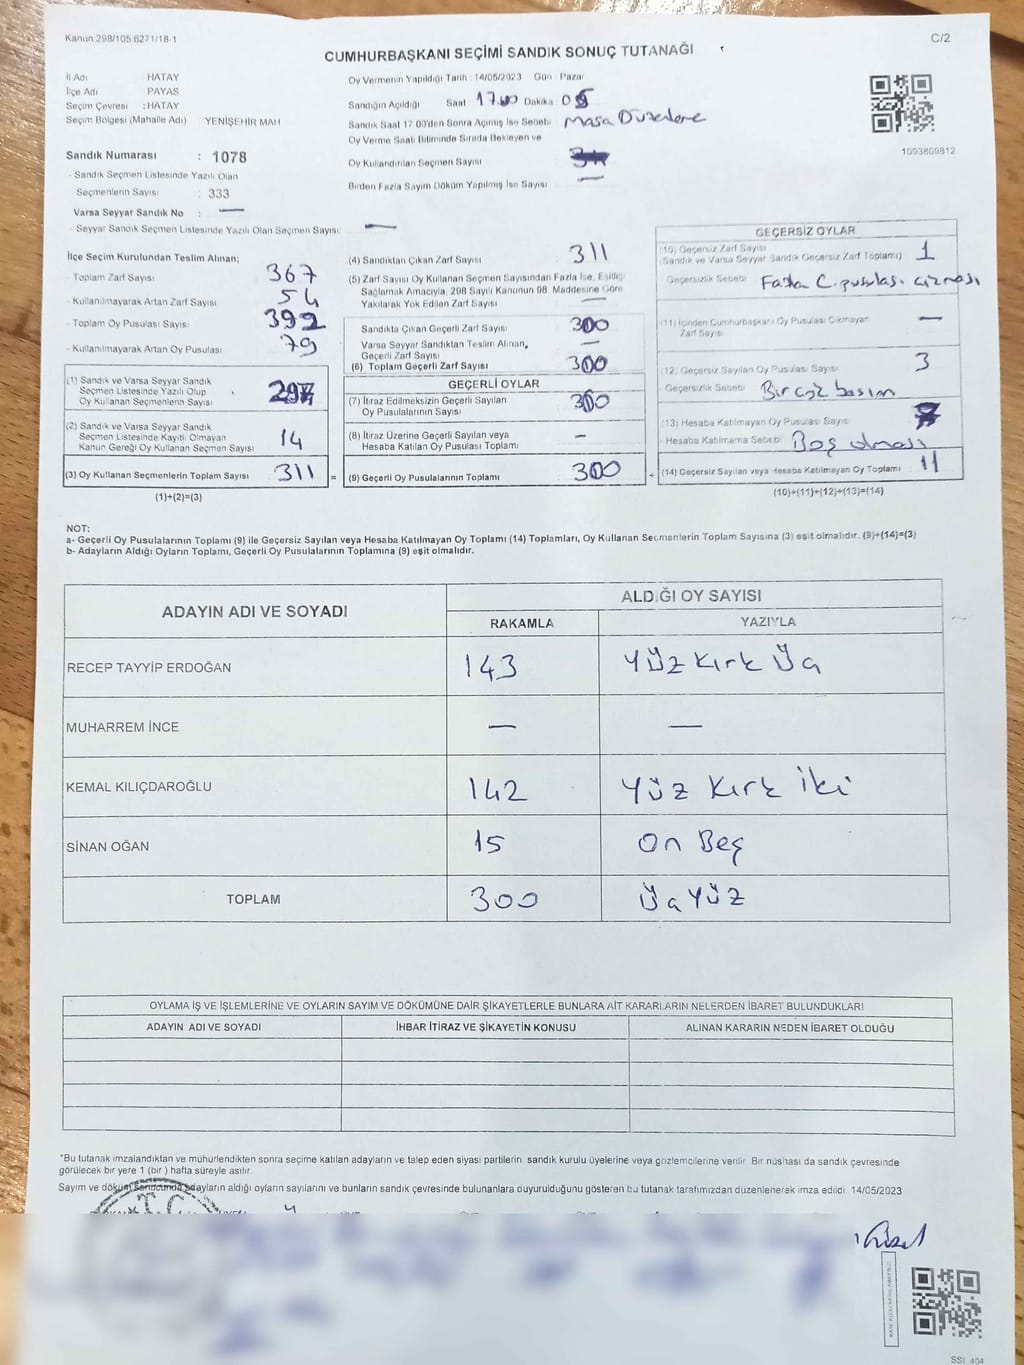 Kanun:298/105 6271/18-1
C/2
CUMHURBAŞKANI SEÇİMİ SANDIK SONUÇ TUTANAĞI
İl Adı HATAY
İlçe Adı PAYAS
Seçim Çevresi : HATAY
Seçim Bölgesi (Mahalle Adı) YENİŞEHİR MAH
Sandık Numarası : 1078
- Sandık Seçmen Listesinde Yazılı Olan
Seçmenlerin Sayısı : 333
Varsa Seyyar Sandık No : —
- Seyyar Sandık Seçmen Listesinde Yazılı Olan Seçmen Sayısı: —
Oy Vermenin Yapıldığı Tarih : 14/05/2023 Gün : Pazar
Sandığın Açıldığı Saat 17.00 Dakika 05
Sandık Saat 17.00'den Sonra Açılmış İse Sebebi Masa Düzenleme
Oy Verme Saati Bitiminde Sırada Bekleyen ve
Oy Kullandırılan Seçmen Sayısı
Birden Fazla Sayım Döküm Yapılmış İse Sayısı —
1093809812
İlçe Seçim Kurulundan Teslim Alınan;
- Toplam Zarf Sayısı 367
- Kullanılmayarak Artan Zarf Sayısı 54
- Toplam Oy Pusulası Sayısı 392
- Kullanılmayarak Artan Oy Pusulası 79
(1) Sandık ve Varsa Seyyar Sandık
Seçmen Listesinde Yazılı Olup
Oy Kullanan Seçmenlerin Sayısı 297
(2) Sandık ve Varsa Seyyar Sandık
Seçmen Listesinde Kayıtlı Olmayan
Kanun Gereği Oy Kullanan Seçmen Sayısı 14
(3) Oy Kullanan Seçmenlerin Toplam Sayısı 311
(1)+(2)=(3)
=
(4) Sandıktan Çıkan Zarf Sayısı 311
(5) Zarf Sayısı Oy Kullanan Seçmen Sayısından Fazla İse, Eşitliği
Sağlamak Amacıyla, 298 Sayılı Kanunun 98. Maddesine Göre
Yakılarak Yok Edilen Zarf Sayısı —
Sandıkta Çıkan Geçerli Zarf Sayısı 300
Varsa Seyyar Sandıktan Teslim Alınan,
Geçerli Zarf Sayısı —
(6) Toplam Geçerli Zarf Sayısı 300
GEÇERLİ OYLAR
(7) İtiraz Edilmeksizin Geçerli Sayılan
Oy Pusulalarının Sayısı 300
(8) İtiraz Üzerine Geçerli Sayılan veya
Hesaba Katılan Oy Pusulası Toplamı —
(9) Geçerli Oy Pusulalarının Toplamı 300
+
GEÇERSİZ OYLAR
(10) Geçersiz Zarf Sayısı
(Sandık ve Varsa Seyyar Sandık Geçersiz Zarf Toplamı) 1
Geçersizlik Sebebi Fazla C.pusulası çizması
(11) İçinden Cumhurbaşkanı Oy Pusulası Çıkmayan
Zarf Sayısı —
(12) Geçersiz Sayılan Oy Pusulası Sayısı 3
Geçersizlik Sebebi Birçok basım
(13) Hesaba Katılmayan Oy Pusulası Sayısı 7
Hesaba Katılmama Sebebi Boş olması
(14) Geçersiz Sayılan veya Hesaba Katılmayan Oy Toplamı 11
(10)+(11)+(12)+(13)=(14)
NOT:
a- Geçerli Oy Pusulalarının Toplamı (9) ile Geçersiz Sayılan veya Hesaba Katılmayan Oy Toplamı (14) Toplamları, Oy Kullanan Seçmenlerin Toplam Sayısına (3) eşit olmalıdır. (9)+(14)=(3)
b- Adayların Aldığı Oyların Toplamı, Geçerli Oy Pusulalarının Toplamına (9) eşit olmalıdır.
ADAYIN ADI VE SOYADI
ALDIĞI OY SAYISI
RAKAMLA YAZIYLA
RECEP TAYYİP ERDOĞAN 143 Yüz Kırk Üç
MUHARREM İNCE — —
KEMAL KILIÇDAROĞLU 142 Yüz Kırk İki
SİNAN OĞAN 15 On Beş
TOPLAM 300 Üç Yüz
OYLAMA İŞ VE İŞLEMLERİNE VE OYLARIN SAYIM VE DÖKÜMÜNE DAİR ŞİKAYETLERLE BUNLARA AİT KARARLARIN NELERDEN İBARET BULUNDUKLARI
ADAYIN ADI VE SOYADI İHBAR İTİRAZ VE ŞİKAYETİN KONUSU ALINAN KARARIN NEDEN İBARET OLDUĞU
*Bu tutanak imzalandıktan ve mühürlendikten sonra seçime katılan adayların ve talep eden siyasi partilerin sandık kurulu üyelerine veya gözlemcilerine verilir. Bir nüshası da sandık çevresinde
görülecek bir yere 1 (bir) hafta süreyle asılır.
Sayım ve döküm sonucunda adayların aldığı oyların sayılarını ve bunların sandık çevresinde bulunanlara duyurulduğunu gösteren bu tutanak tarafımızdan düzenlenerek imza edildi. 14/05/2023
T.C.
SSI_404